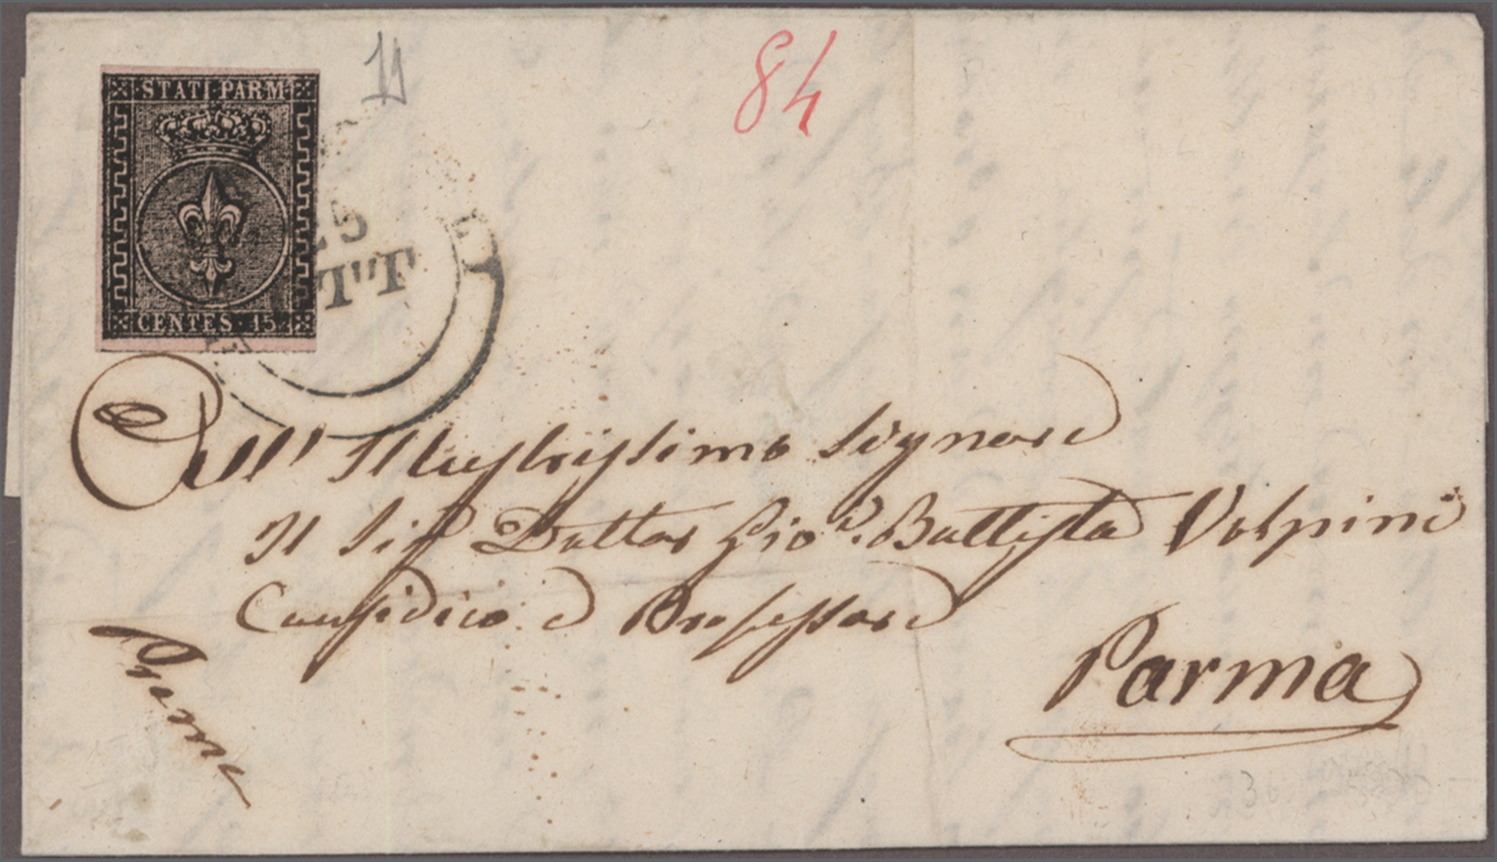 STATI PARM
CENTES. 15
84
25
OTT
All' Illustrissimo Signore
Il Sigr Dottor Gioⁿ. Battista Volpini
Causidico e Professore
Preme
Parma